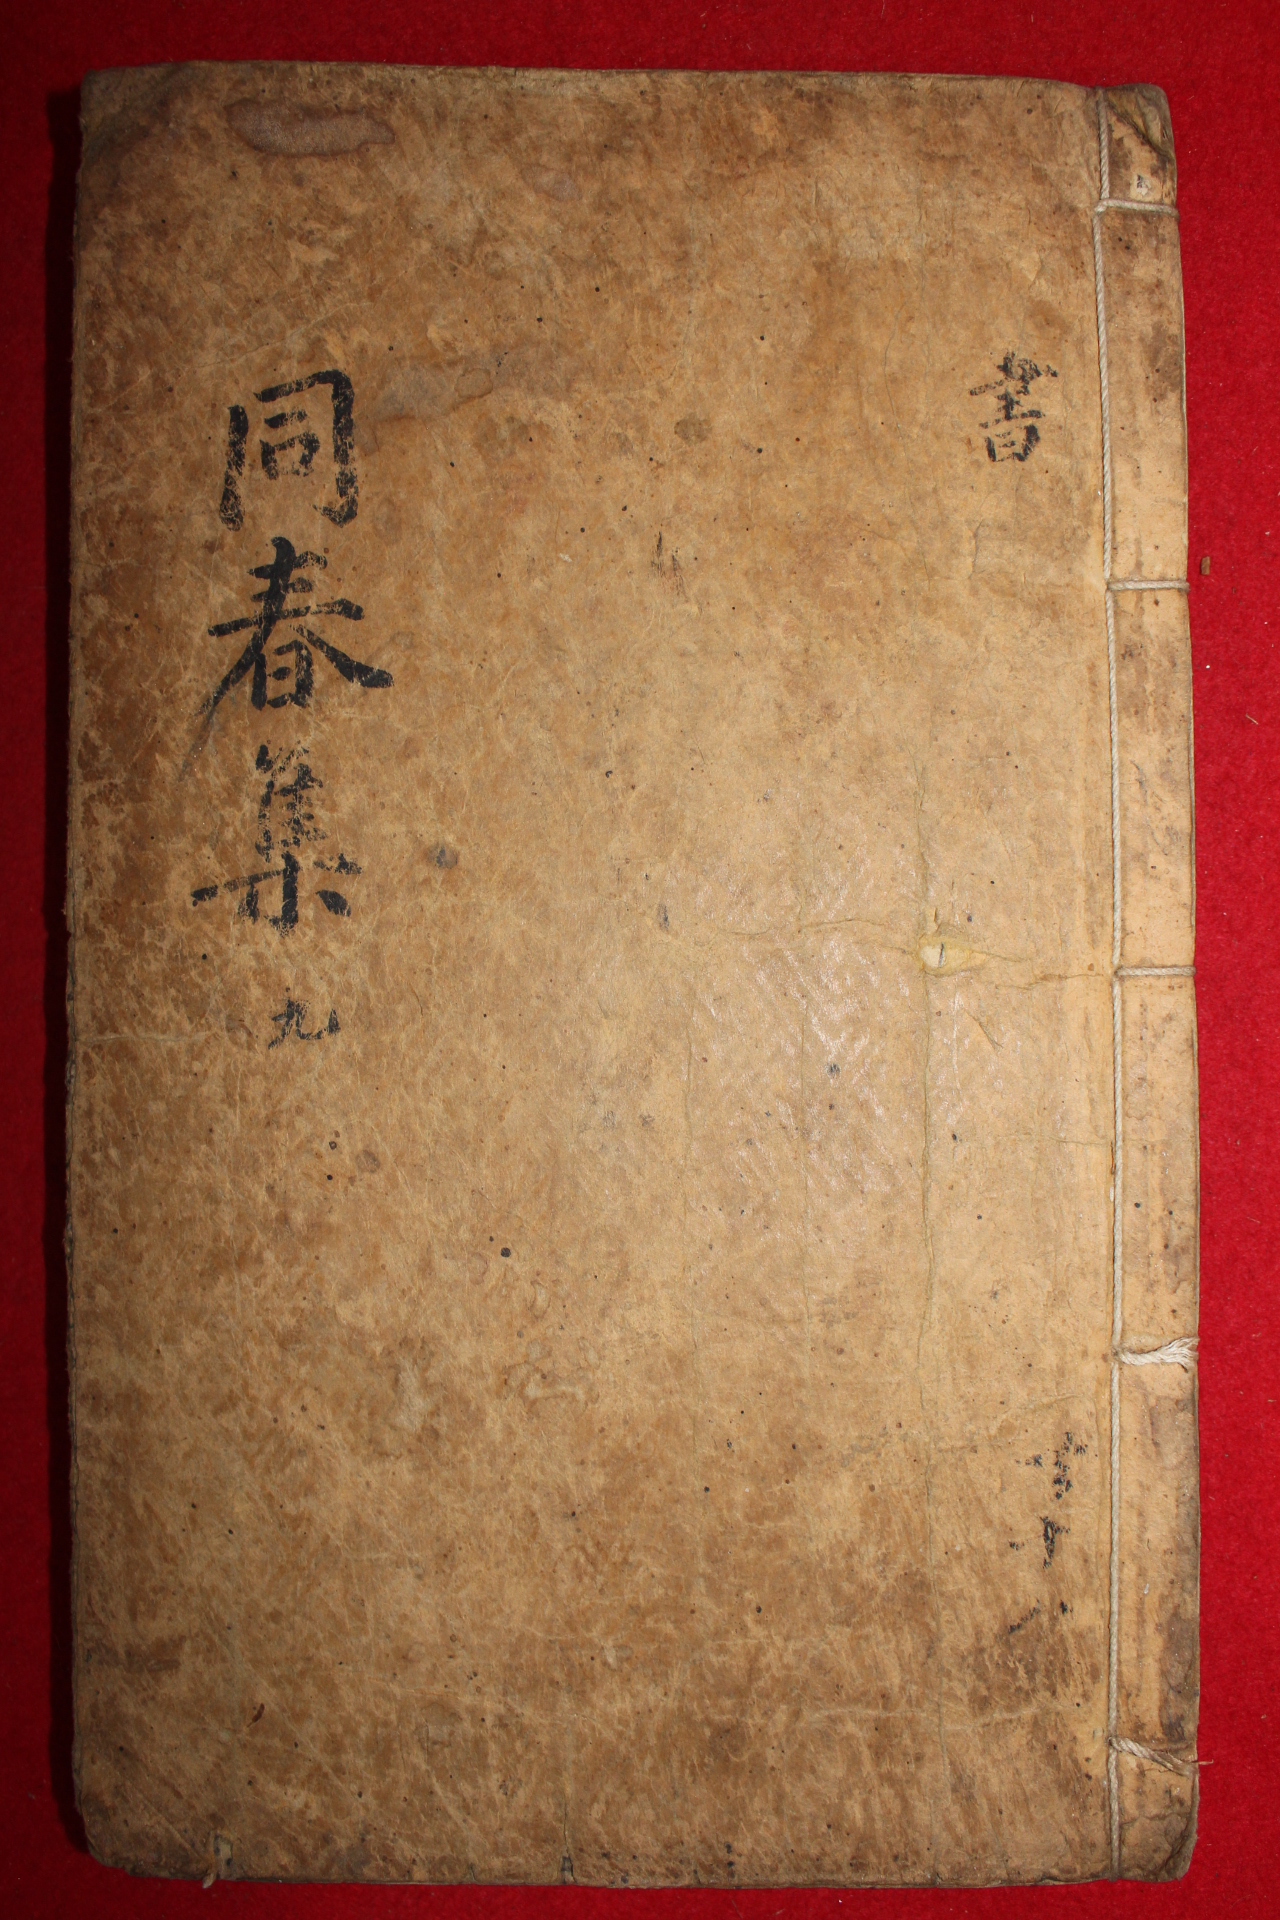 書
同春集 九